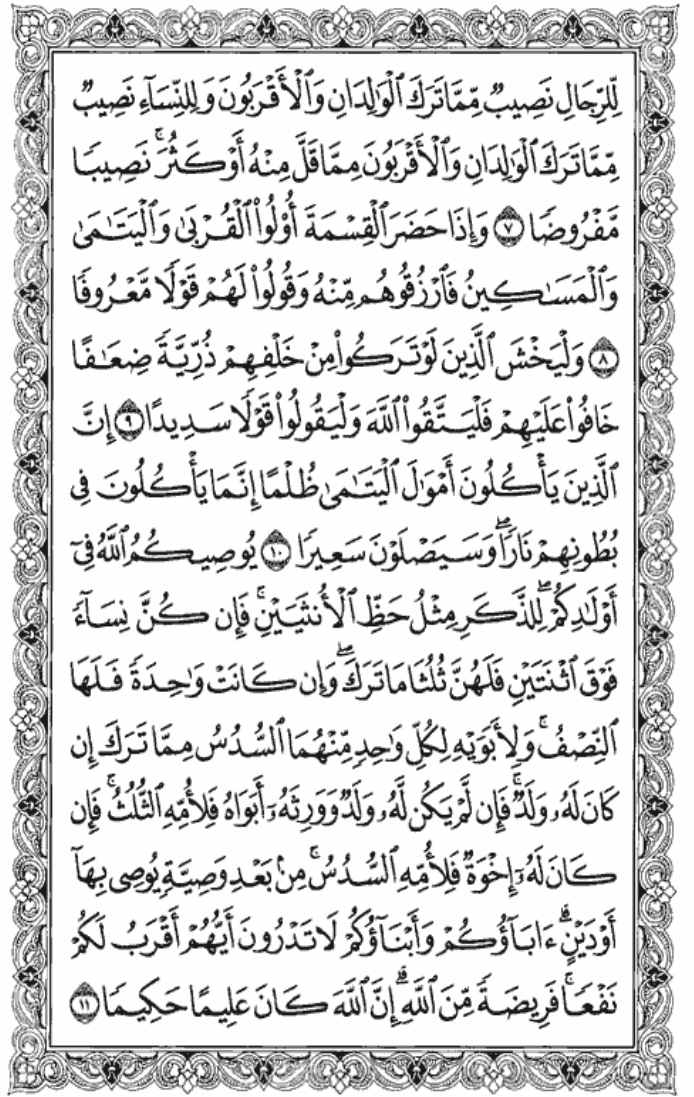 لِّلرِّجَالِ نَصِيبٌ مِّمَّا تَرَكَ ٱلْوَٰلِدَانِ وَٱلْأَقْرَبُونَ وَلِلنِّسَآءِ نَصِيبٌ
مِّمَّا تَرَكَ ٱلْوَٰلِدَانِ وَٱلْأَقْرَبُونَ مِمَّا قَلَّ مِنْهُ أَوْ كَثُرَ ۚ نَصِيبًا
مَّفْرُوضًا ٧ وَإِذَا حَضَرَ ٱلْقِسْمَةَ أُو۟لُوا۟ ٱلْقُرْبَىٰ وَٱلْيَتَٰمَىٰ
وَٱلْمَسَٰكِينُ فَٱرْزُقُوهُم مِّنْهُ وَقُولُوا۟ لَهُمْ قَوْلًا مَّعْرُوفًا
٨ وَلْيَخْشَ ٱلَّذِينَ لَوْ تَرَكُوا۟ مِنْ خَلْفِهِمْ ذُرِّيَّةً ضِعَٰفًا
خَافُوا۟ عَلَيْهِمْ فَلْيَتَّقُوا۟ ٱللَّهَ وَلْيَقُولُوا۟ قَوْلًا سَدِيدًا ٩ إِنَّ
ٱلَّذِينَ يَأْكُلُونَ أَمْوَٰلَ ٱلْيَتَٰمَىٰ ظُلْمًا إِنَّمَا يَأْكُلُونَ فِى
بُطُونِهِمْ نَارًا ۖ وَسَيَصْلَوْنَ سَعِيرًا ١٠ يُوصِيكُمُ ٱللَّهُ فِىٓ
أَوْلَٰدِكُمْ ۖ لِلذَّكَرِ مِثْلُ حَظِّ ٱلْأُنثَيَيْنِ ۚ فَإِن كُنَّ نِسَآءً
فَوْقَ ٱثْنَتَيْنِ فَلَهُنَّ ثُلُثَا مَا تَرَكَ ۖ وَإِن كَانَتْ وَٰحِدَةً فَلَهَا
ٱلنِّصْفُ ۚ وَلِأَبَوَيْهِ لِكُلِّ وَٰحِدٍ مِّنْهُمَا ٱلسُّدُسُ مِمَّا تَرَكَ إِن
كَانَ لَهُۥ وَلَدٌ ۚ فَإِن لَّمْ يَكُن لَّهُۥ وَلَدٌ وَوَرِثَهُۥٓ أَبَوَاهُ فَلِأُمِّهِ ٱلثُّلُثُ ۚ فَإِن
كَانَ لَهُۥٓ إِخْوَةٌ فَلِأُمِّهِ ٱلسُّدُسُ ۚ مِنۢ بَعْدِ وَصِيَّةٍ يُوصِى بِهَآ
أَوْ دَيْنٍ ۗ ءَابَآؤُكُمْ وَأَبْنَآؤُكُمْ لَا تَدْرُونَ أَيُّهُمْ أَقْرَبُ لَكُمْ
نَفْعًا ۚ فَرِيضَةً مِّنَ ٱللَّهِ ۗ إِنَّ ٱللَّهَ كَانَ عَلِيمًا حَكِيمًا ١١